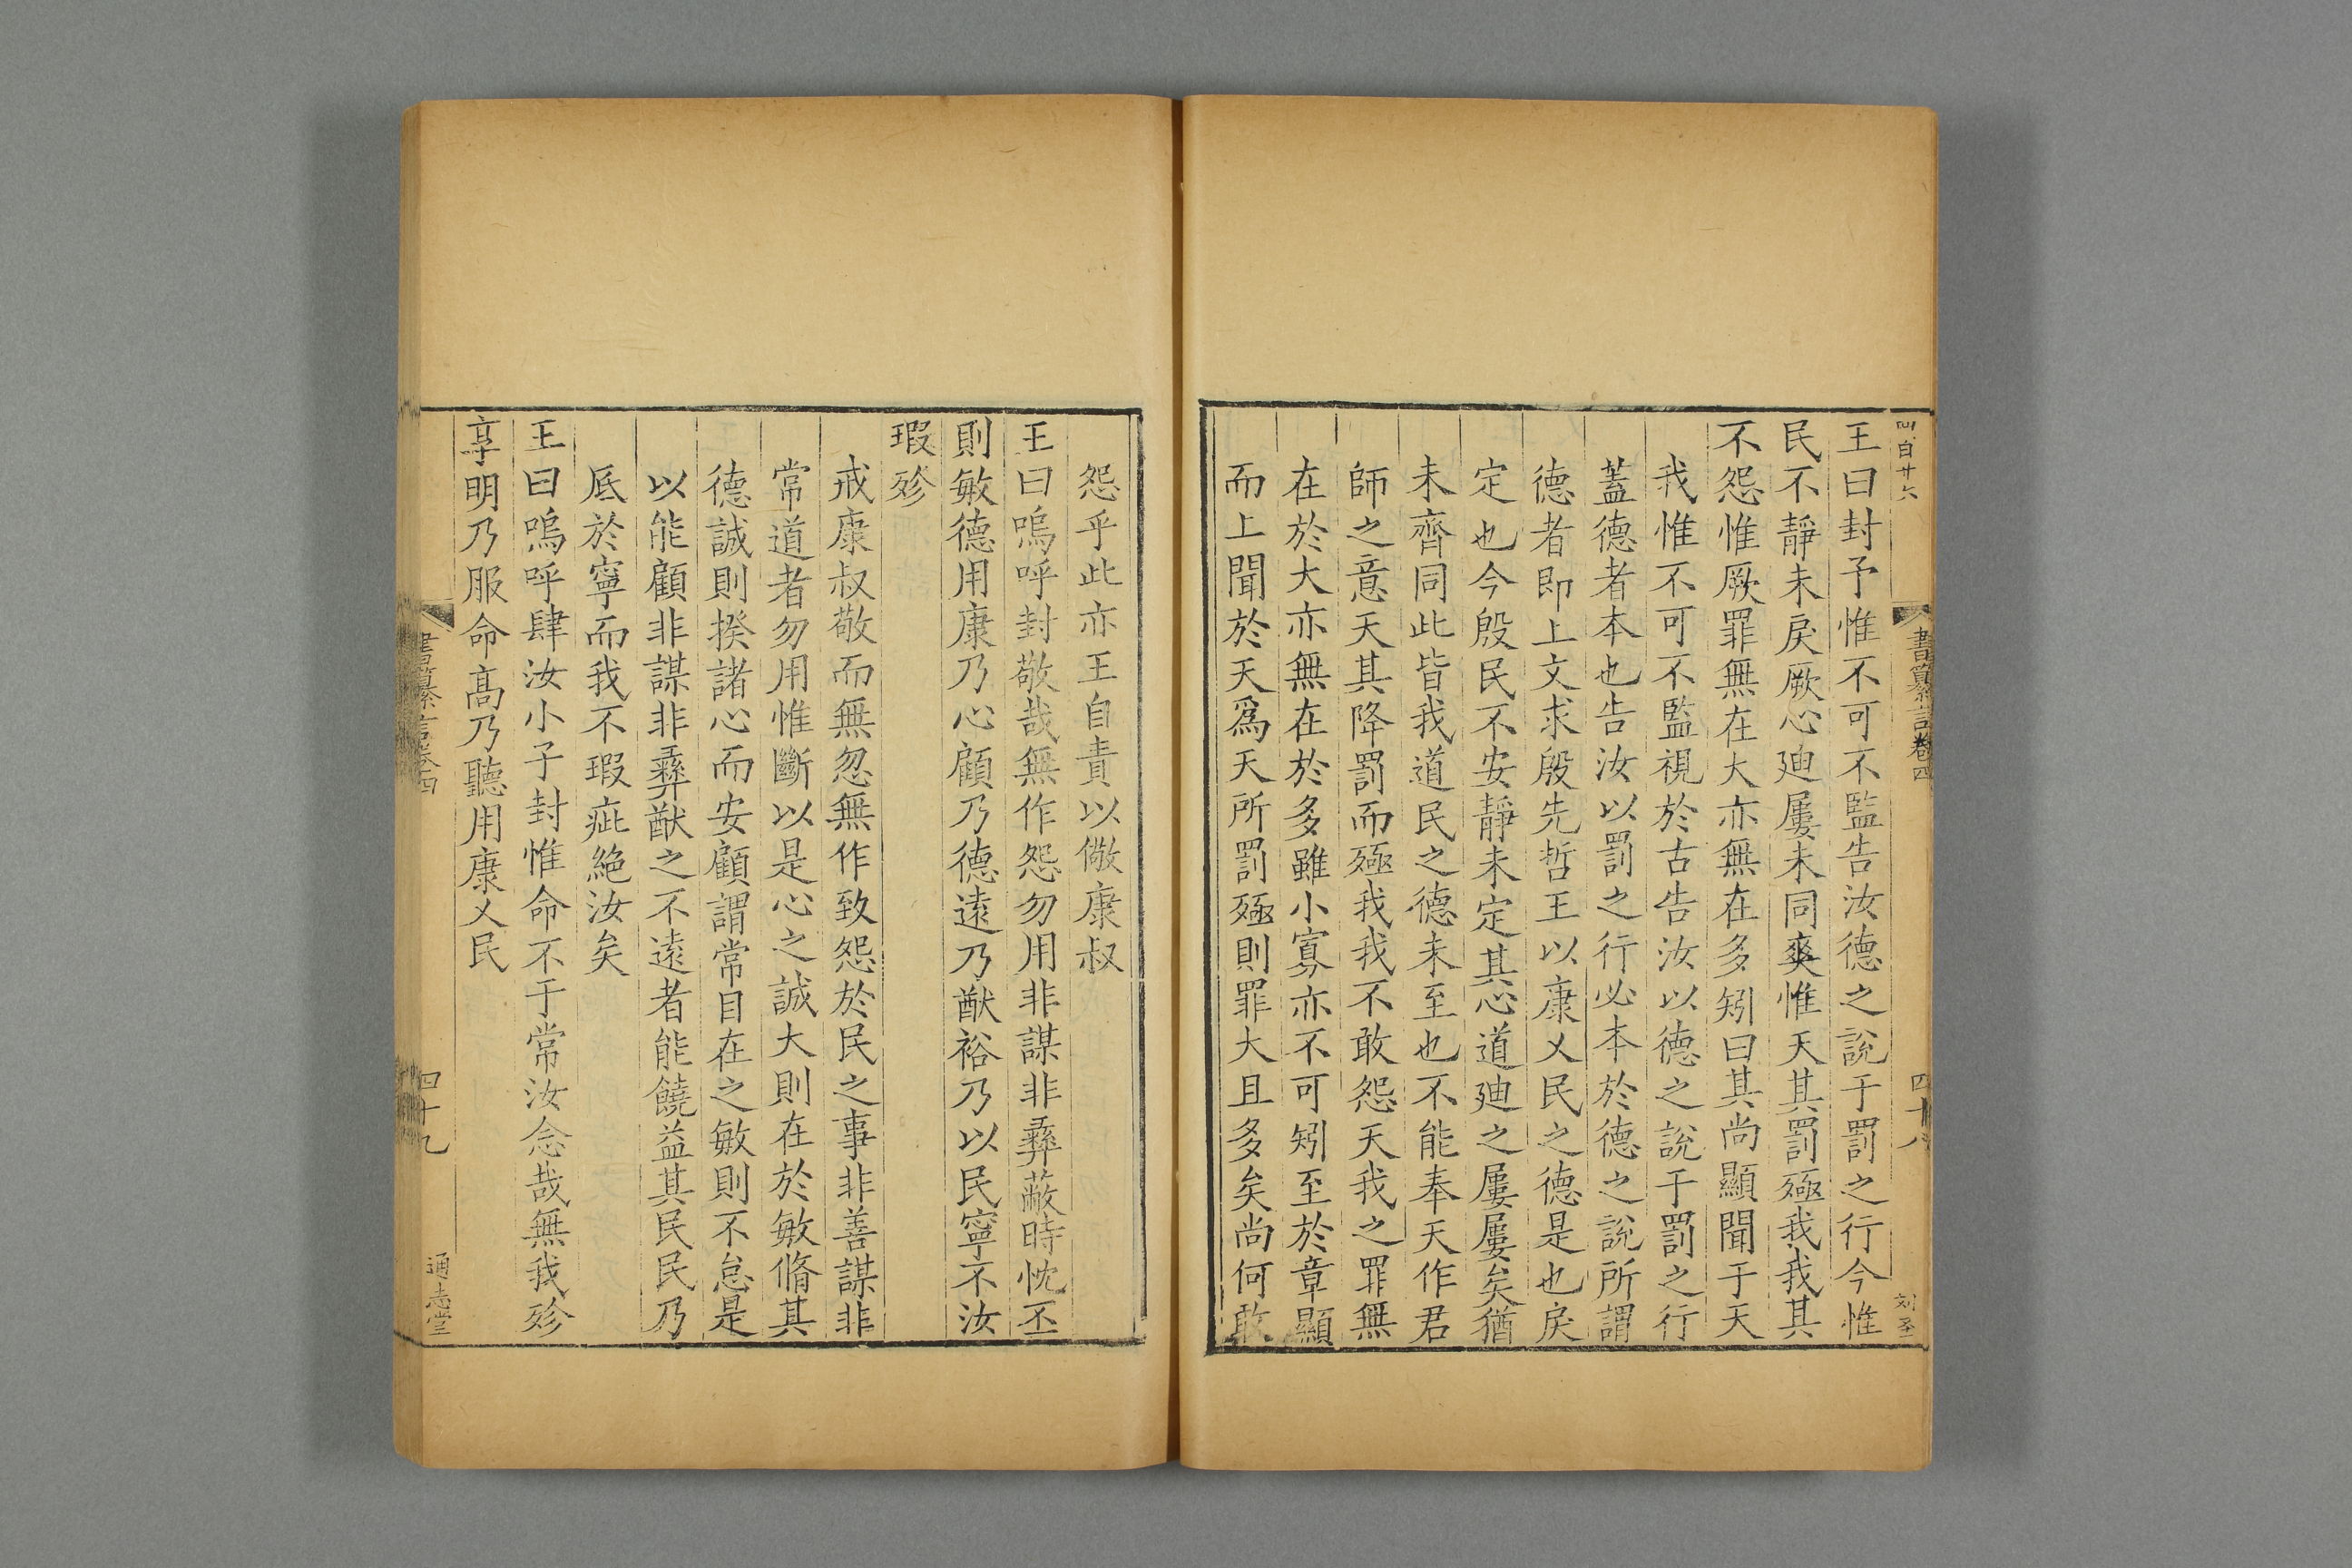 四百廿六
書纂言卷四
四十八
王曰封予惟不可不監告汝德之說于罰之行今惟
民不靜未戾厥心廸屢未同爽惟天其罰殛我我其
不怨惟厥罪無在大亦無在多矧曰其尚顯聞于天
我惟不可不監視於古告汝以德之說于罰之行
蓋德者本也告汝以罰之行必本於德之說所謂
德者即上文求殷先哲王以康乂民之德是也戾
定也今殷民不安靜未定其心道廸之屢屢矣猶
未齊同此皆我道民之德未至也不能奉天作君
師之意天其降罰而殛我我不敢怨天我之罪無
在於大亦無在於多雖小寡亦不可矧至於章顯
而上聞於天爲天所罰殛則罪大且多矣尚何敢
怨乎此亦王自責以儆康叔
王曰嗚呼封敬哉無作怨勿用非謀非彝蔽時忱丕
則敏德用康乃心顧乃德遠乃猷裕乃以民寧不汝
瑕殄
戒康叔敬而無忽無作致怨於民之事非善謀非
常道者勿用惟斷以是心之誠大則在於敏脩其
德誠則揆諸心而安顧謂常目在之敏則不怠是
以能顧非謀非彝猷之不遠者能饒益其民民乃
底於寧而我不瑕疵絶汝矣
王曰嗚呼肆汝小子封惟命不于常汝念哉無我殄
享明乃服命髙乃聽用康乂民
書纂言卷四
四十九
通志堂